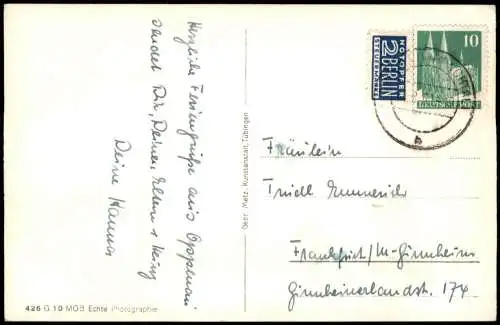 Herzliche Feriengrüße aus Oppenau
sendet Dir, Deinen Eltern & Heinz
Deine Hanna
Gebr. Metz, Kunstanstalt, Tübingen
426 G 10 MOB Echte Photographie
NOTOPFER
2 BERLIN
STEUERMARKE
10
DEUTSCHE POST
b
Fräulein
Trudl Emmerich
Frankfurt/M-Ginnheim
Ginnheimerlandstr. 174